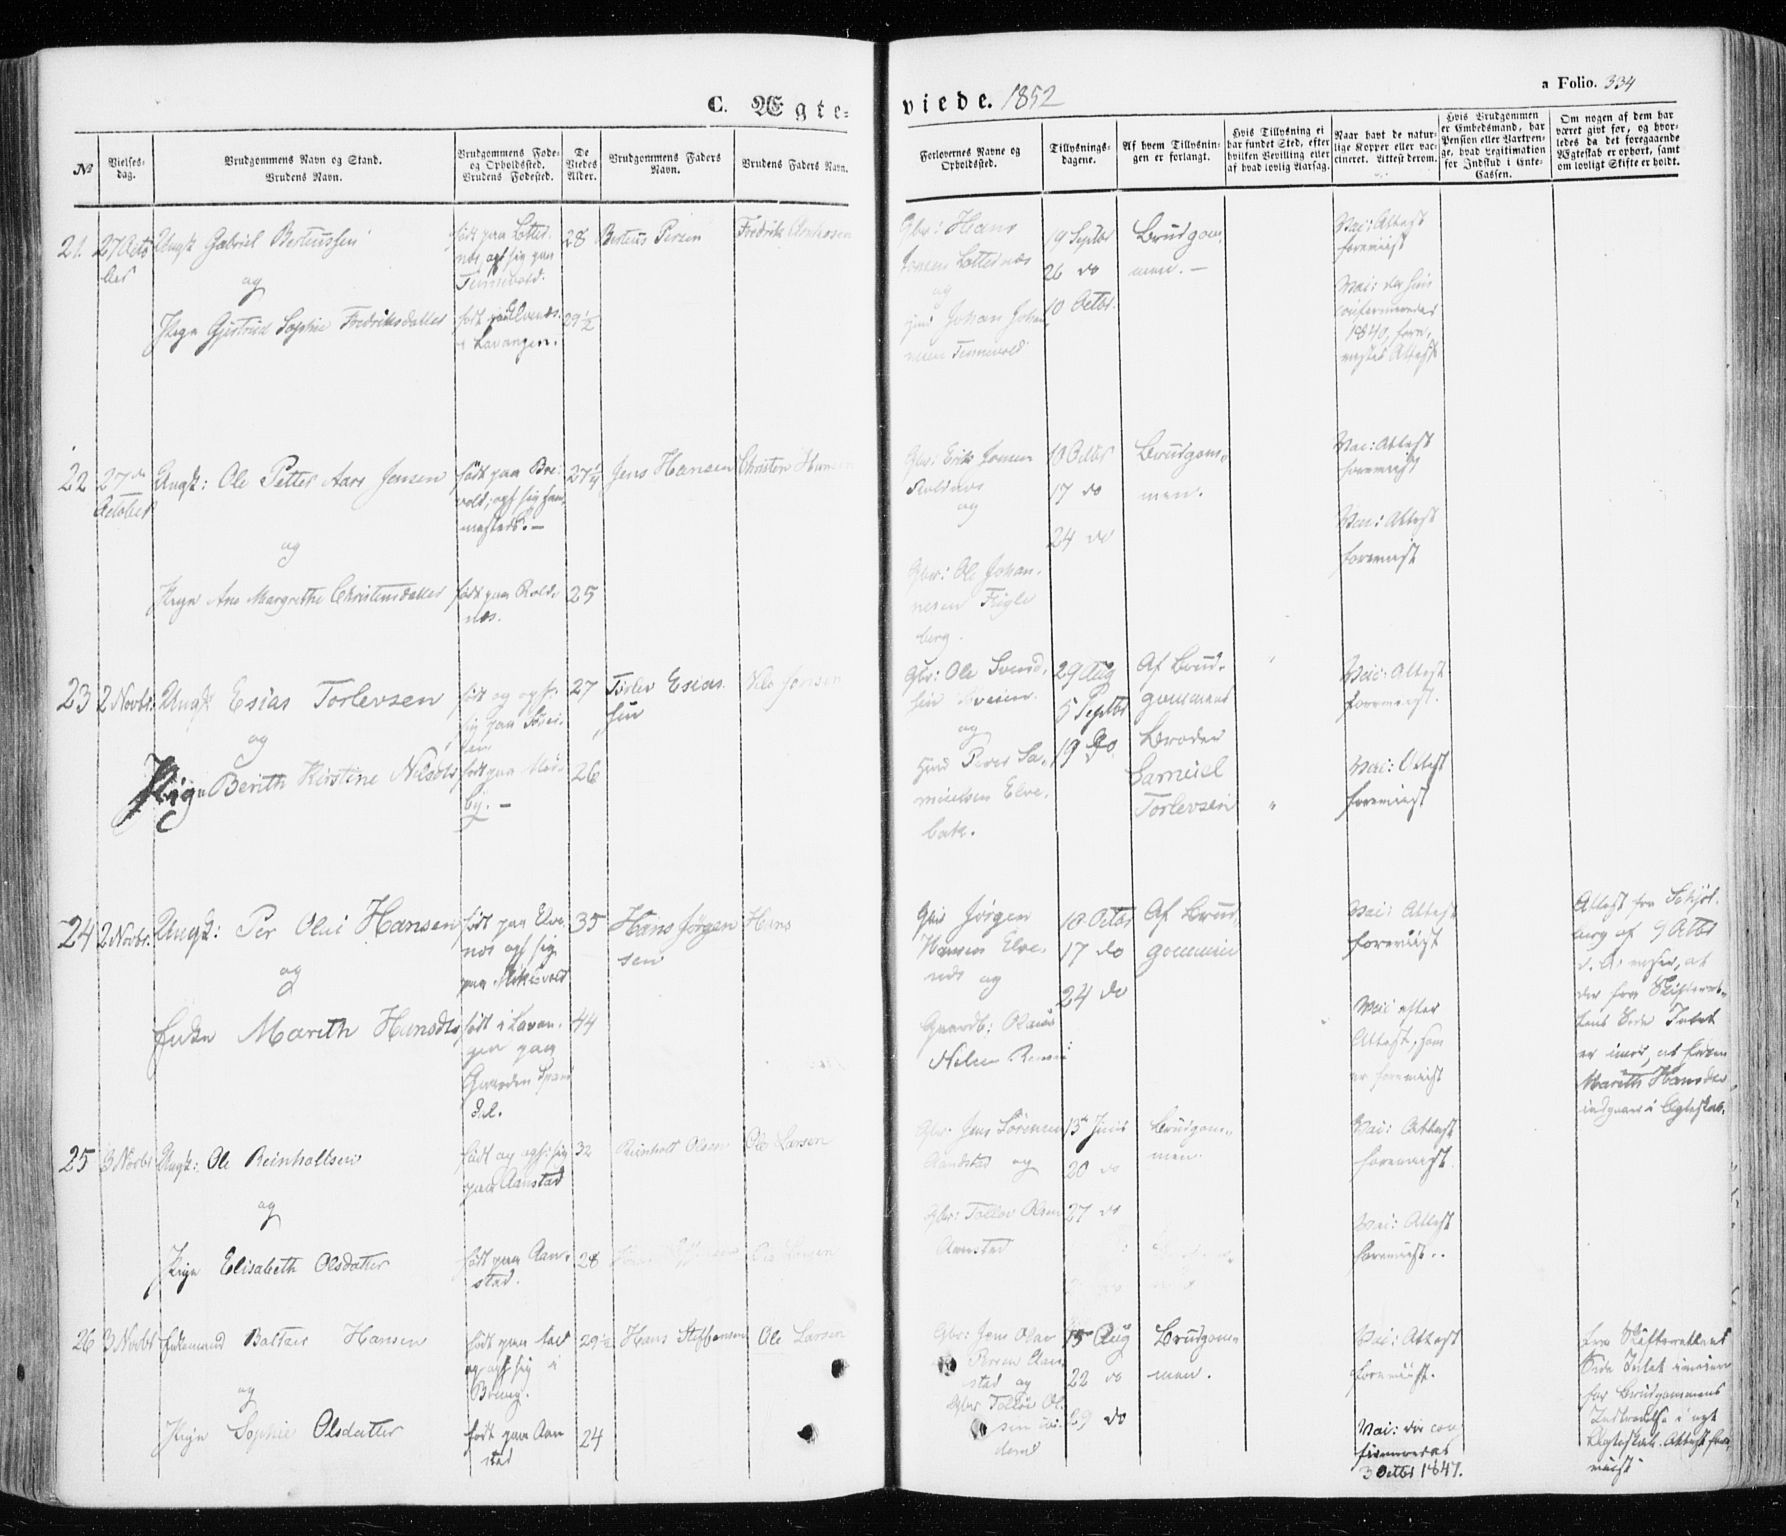 C. Ægte-
viede. 1852
a Folio. 334
No
Vielses-
dag.
Brudgommens Navn og Stand.
Brudens Navn.
Brudgommens Føde-
og Opholdssted.
Brudens Fødested.
De
Viedes
Alder.
Brudgommens Faders
Navn.
Brudens Faders Navn.
Forlovernes Navne og
Opholdssted.
Tillysnings-
dagene.
Af hvem Tillysnin-
gen er forlangt.
Hvis Tillysning ei
har fundet Sted, efter
hvilken Bevilling eller
af hvad lovlig Aarsag.
Naar havt de natur-
lige Kopper eller vac-
cineret. Attest derom.
Hvis Brudgommen
er Embedsmand, har
Pension eller Vartpen-
ge, hvad Legitimation
for Indskud i Enke-
Cassen.
Om nogen af dem har
været givt før, og hvor-
ledes da det foregaaende
Ægteskab er ophørt, samt
om lovligt Skifte er holdt.
21. 27 Octo
ber
Ungk Gabriel Berteussen
og
Pige Gjertrud Sophie Fredriksdatter
født paa Lotter-
næs, oph sig paa
Tennevold.
i Lavangen.
28
29 1/2
Berteus Persen
Fredrik
Gbr: Hans
Jensen Lotternæs
og
Johan Johan
nesen Tennevold
19 Septbr
26 do
10 Octbr.
Brudgom
men. –
Vac: Attest
foreviist
Vac: da hun
confirmeredes
1840, fore-
vistes Attest
22 27de
October
Ungk: Ole Petter Aars Jensen
og
Pige Ane Margrethe Christensdatter
født paa Bre-
vold, oph sig sam-
mesteds. –
født paa Rold-
næs.
27 1/4
25
Jens Hansen
Christen Hansen
Gbr: Erik Jensen
Roldnæs
og
Gbr: Ole Johan-
nesen Fugle
berg.
10 Octbr
17 do
24 do
Brudgom-
men.
Vac: Attest
foreviist
Vac: Attest
foreviist
23 2 Novbr.
Ungk Esias Torlevsen
og
Pige Berith Kirstine Nilsdtr
født og oph.
sig paa
født paa
by. –
27
26
Torlev Esias-
sen
Nils Jensen
Gbr: Ole Svend-
sen
og
Peder Sa-
muelsen Elve-
bak.
29 Aug
5 Septbr
19 do
Af Brud-
gommens
Broder
Samuel
Torlevsen
Vac: Attest
foreviist.
Vac: Attest
foreviist
24 2 Novbr.
Ungk: Per Olai Hansen
og
Enke Marith Hansdtr
født paa Elve-
næs oph sig
paa
født i Lavan-
gen paa
Gaarden Span-
dal.
35
44
Hans Jørgen
sen
Hans
Gbr Jørgen
Hansen Elve-
næs og
Gaardb: Olaus
Nilsen
10 Octbr
17 do
24 do
Af Brud
gommen
Vac: Attest
foreviist
Vac: efter
Attest, som
er foreviist
Attest fra
berg af 9 Octbr
d. A. viser, at
der fra Skifteret-
tens Side Intet
er imod, at Enken
Marith Hansdtr
indgaaer i Ægteskab.
25 3 Novbr
Ungk: Ole Reinholtsen
og
Pige Elisabeth Olsdatter
født og oph: sig
paa Aanstad
født paa Aan-
stad.
32
28
Reinholt Olsen
Ole Larsen
Gbr: Jens Sørensen
Aanstad og
Gbr: Tollev Olsen
Aanstad
13de Juni
20 do
27 do
Brudgom-
men.
Vac: Attest
foreviist.
Vac: Attest
foreviist.
26 3 Novbr
Enkemand Baltser Hansen
og
Pige Sophie Olsdatter
født paa
og oph sig i
født paa Aan
stad
29 1/2
24
Hans Steffensen
Ole Larsen
Gbr: Jens Olai
Aan
stad og
Gbr Tollev Ol-
sen ibi-
dem
15 Aug
22 do
29 do
Brudgom-
men.
Vac: Attest
foreviist.
Vac: da con
firmeredes
3 Octbr 1847.
Fra Skifterettens
Side Intet imod
for Brudgommens
Indtrædelse i nyt
Ægteskab. Attest fore-
viist